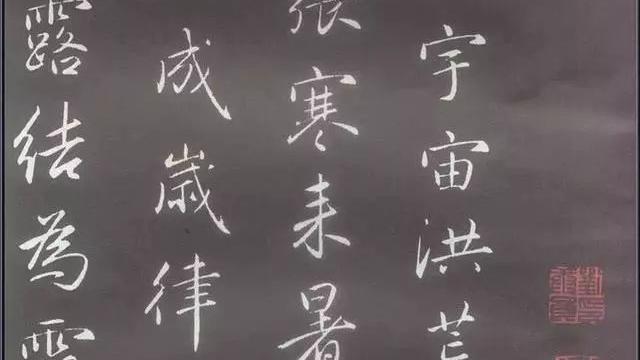 宇宙洪荒
張寒来暑
成歳律
露結為